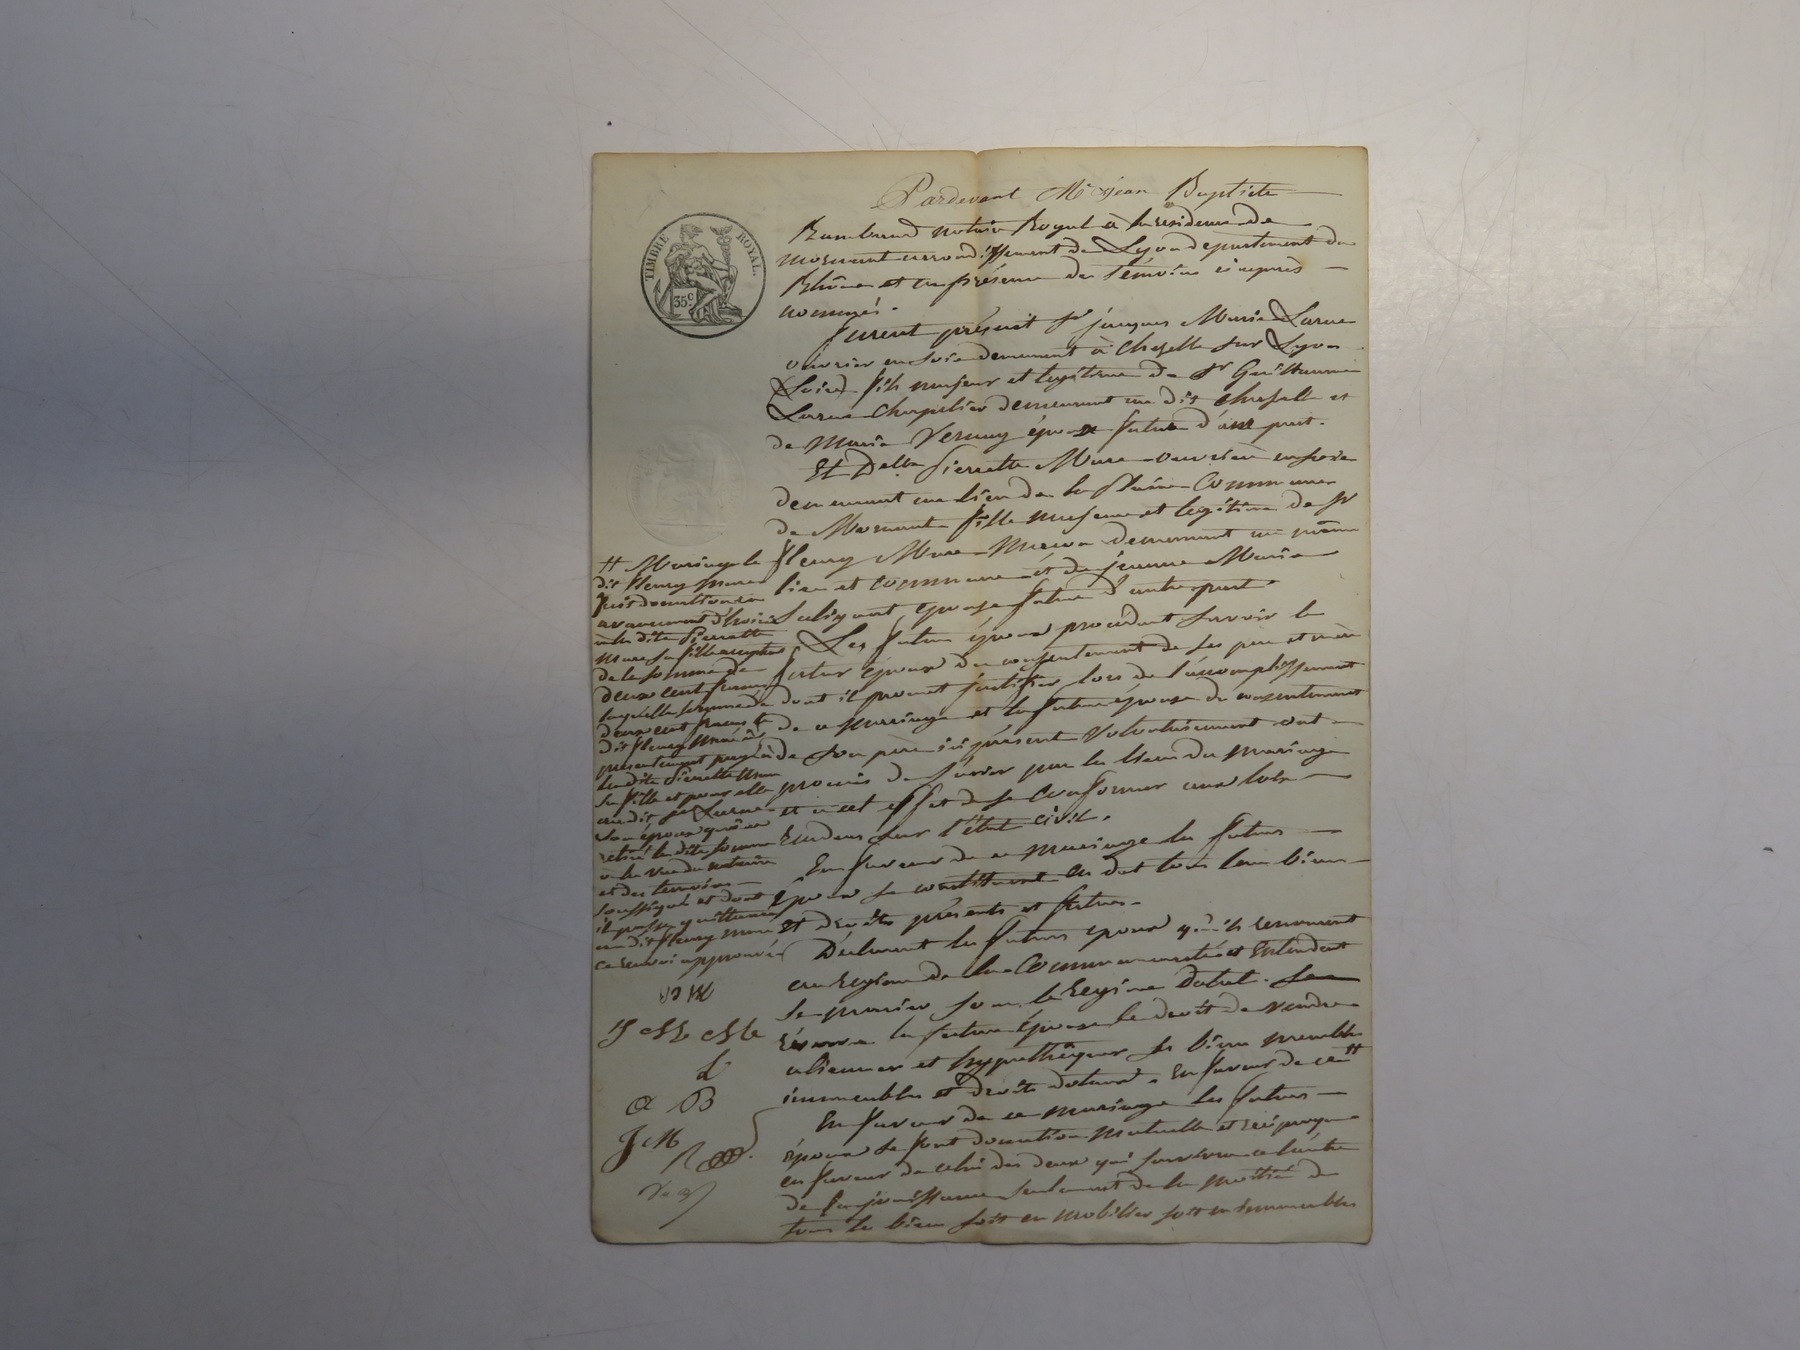 Pardevant Me jean Baptiste
Rambaud notaire Royal à la résidence de
mornant arrondissement de Lyon departement du
Rhône et en présence des témoins ci après
nommés.
TIMBRE ROYAL.
35c
furent présent sr jacques Marie Larue
ouvrier en soie demeurant à Chazelle sur Lyon
Loire fils majeur et legitime de sr Guillaume
Larue Chapelier demeurant au dit Chazelle et
de Marie Vernay époux futur d'une part.
Et Delle Pierrette Mure ouvrière en soie
demeurant au lieu de la Plaine Commune
de Mornant fille majeure et legitime de sr
fleury Mure demeurant au même
lieu et commune et de jeanne Marie
épouse future d'autre part
Les futurs époux procédant savoir le
futur époux du consentement de ses père et mère
dont il promet justifier lors de l'accomplissement
de ce mariage et la future épouse du consentement
de son père ici présent Volontairement ont
promis de s'unir par les liens du mariage
et à cet effet de se Conformer aux lois
rendues sur l'état civil.
En faveur de ce mariage les futurs
époux se constituent en dot tous leurs biens
et droits présents et futurs.
Déclarent les futurs époux qu'ils renoncent
au Régime de la Communauté et Entendent
se marier sous le Régime Dotal. Se
réserve la future épouse le droit de vendre
aliener et hypothéquer ses biens meubles
immeubles et droits dotaux. En faveur de ce #
En faveur de ce mariage les futurs
époux se font donation Mutuelle et réciproque
en faveur de celui des deux qui survivra à l'autre
de la jouissance seulement de la moitié de
tous les biens soit en mobilier soit en immeubles
# Mariage le
dit fleury mure
fait donation en
avancement d'hoirie
à la dite Pierrette
Mure sa fille acceptant
de la somme de
deux cent francs
laquelle somme de
deux cent francs le
dit fleury Mure à
présentement payée à
la dite Pierrette Mure
sa fille et pour elle
au dit sr Larue
son époux qui a
retiré la dite somme
à la vue du notaire
et des témoins
soussignés et dont
il passe quittance
au dit fleury mure
ce renvoi approuvé
L
B
J M